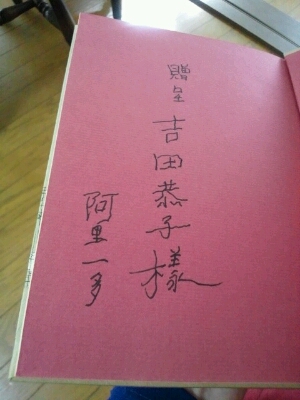 贈呈
吉田恭子様
阿里一多